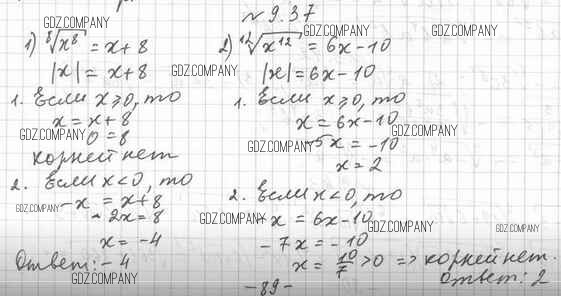 № 9.37
1) ⁸√x⁸ = x + 8
|x| = x + 8
1. Если x ⩾ 0, то
x = x + 8
0 = 8
корней нет
2. Если x < 0, то
-x = x + 8
-2x = 8
x = -4
Ответ: -4
2) ¹²√x¹² = 6x - 10
|x| = 6x - 10
1. Если x ⩾ 0, то
x = 6x - 10
-5x = -10
x = 2
2. Если x < 0, то
-x = 6x - 10
-7x = -10
x = 10/7 > 0 => корней нет.
Ответ: 2
-89-
GDZ.COMPANY
GDZ.COMPANY
GDZ.COMPANY
GDZ.COMPANY
GDZ.COMPANY
GDZ.COMPANY
GDZ.COMPANY
GDZ.COMPANY
GDZ.COMPANY
GDZ.COMPANY
GDZ.COMPANY
GDZ.COMPANY